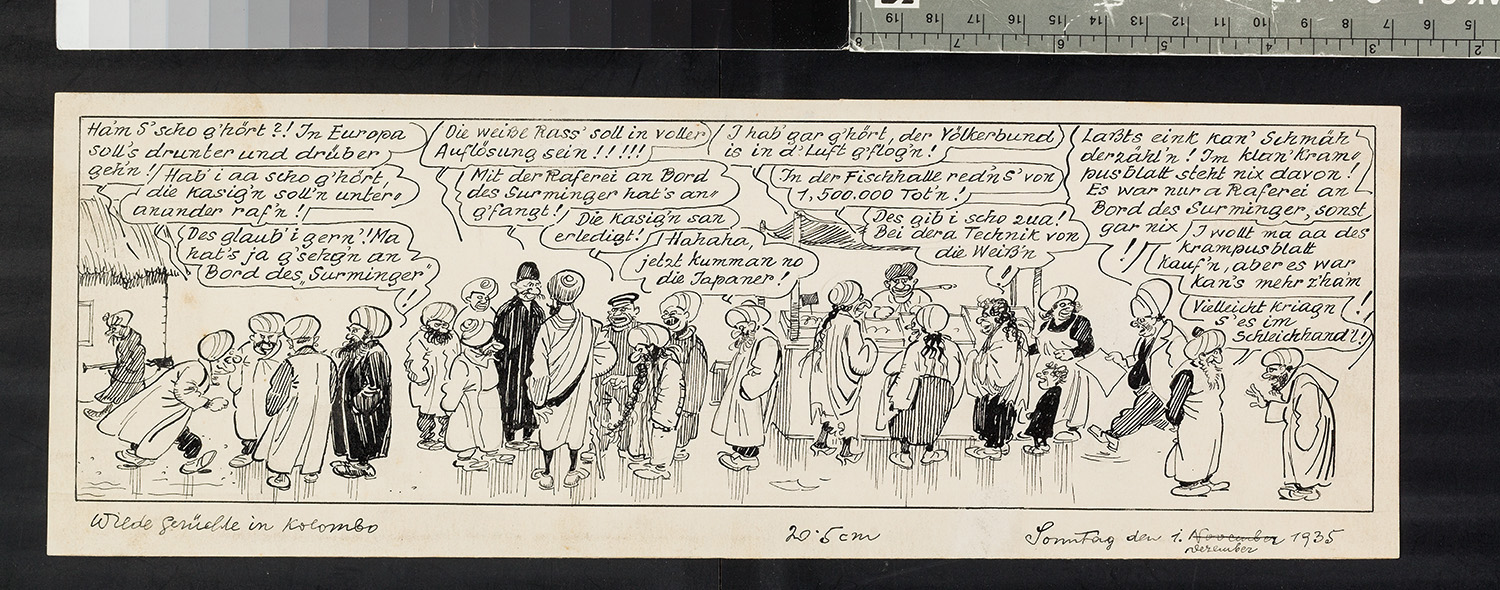 Ha'm S' scho g'hört?! In Europa
soll's drunter und drüber
geh'n!
Hab' i aa scho g'hört,
die Kasig'n soll'n unter-
anander raf'n!
Des glaub' i gern'! Ma
hat's ja g'sehg'n an
Bord des „Surminger“
!
Die weiße Rass' soll in voller
Auflösung sein!!!!!
Mit der Raferei an Bord
des Surminger hat's an-
g'fangt!
Die Kasig'n san
erledigt!
Hahaha,
jetzt kumman no
die Japaner!
I hab' gar g'hört, der Völkerbund
is in d' Luft g'flog'n!
In der Fischhalle red'n S' von
1,500.000 Tot'n!
Des gib i scho zua!
Bei dera Technik von
die Weiß'n
!
Laßts eink kan' Schmäh
derzähl'n! Im klan' Kram-
pusblatt steht nix davon!
Es war nur a Raferei an
Bord des Surminger, sonst
gar nix
!!
I wollt ma aa des
Krampusblatt
kauf'n, aber es war
kan's mehr z'ha'm
!
Vielleicht kriagn
S' es im
Schleichhand'l!
Wilde Gerüchte in Kolombo
20·5 cm
Sonntag den 1. November 1935
Dezember
19 18 17 16 15 14 13 12 11 10 9 8 7 6 5
8 7 6 5 4 3 2